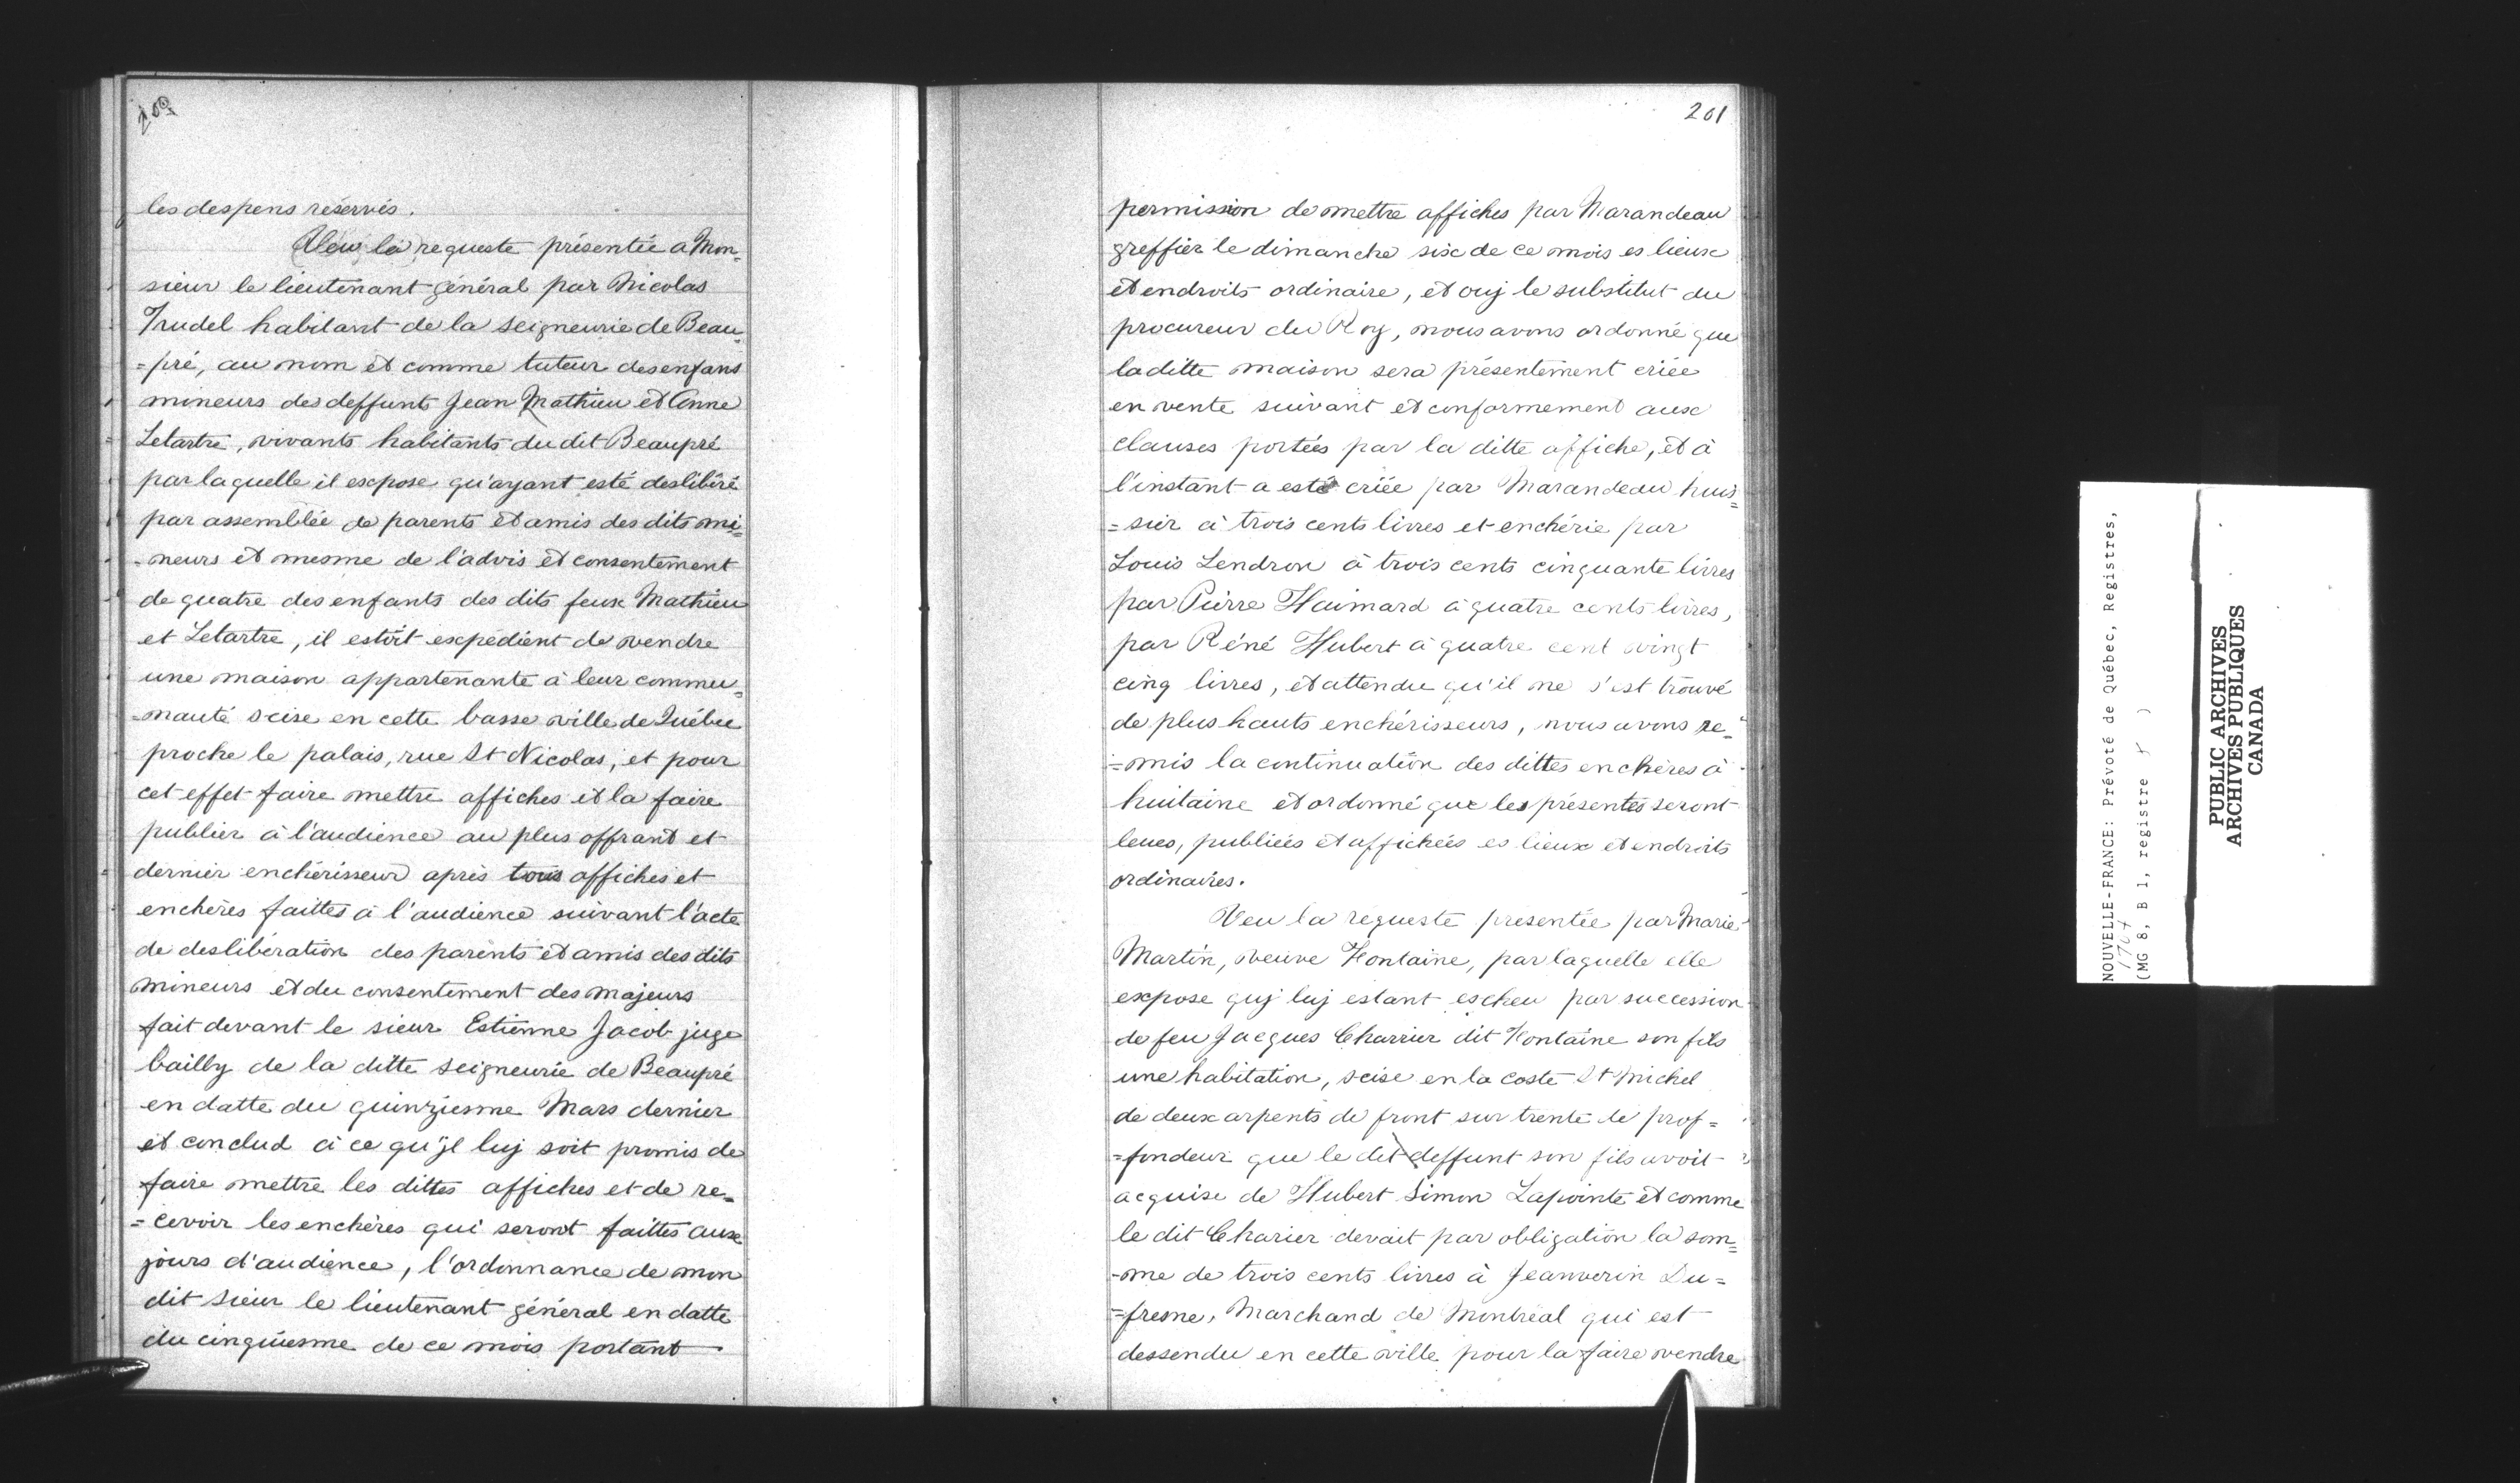 200
les despens réservés.
Veu la requeste présentée a Mon-
sieur le lieutenant général par Nicolas
Trudel habitant de la seigneurie de Beau-
=pré, au nom et comme tuteur des enfans
mineurs des deffunts Jean Mathieu et Anne
Letartre, vivants habitants du dit Beaupré
par laquelle il expose qu'ayant esté deslibéré
par assemblée de parents et amis des dits mi=
=neurs et mesme de l'advis et consentement
de quatre des enfants des dits feux Mathieu
et Letartre, il estoit expédient de vendre
une maison appartenante à leur commu=
=nauté scise en cette basse ville de Québec
proche le palais, rue St Nicolas, et pour
cet effet faire mettre affiches et la faire
publier à l'audience au plus offrant et
dernier enchérisseur après trois affiches et
enchères faittes à l'audience suivant l'acte
de deslibération des parents et amis des dits
mineurs et du consentement des majeurs
fait devant le sieur Estienne Jacob juge
bailly de la ditte seigneurie de Beaupré
en datte du quinziesme Mars dernier
et conclud à ce qu'jl luj soit promis de
faire mettre les dittes affiches et de re=
=cevoir les enchères qui seront faittes aux
jours d'audience, l'ordonnance de mon
dit sieur le lieutenant général en datte
du cinquiesme de ce mois portant
201
permission de mettre affiches par Marandeau
greffier le dimanche six de ce mois es lieux
et endroits ordinaire, et ouj le substitut du
procureur du Roy, nous avons ordonné que
la ditte maison sera présentement criée
en vente suivant et conformement aux
clauses portées par la ditte affiche, et à
l'instant a esté criée par Marandeau huis=
=sier à trois cents livres et enchérie par
Louis Lendron à trois cents cinquante livres
par Pierre Haimard à quatre cents livres,
par Réné Hubert à quatre cent vingt
cinq livres, et attendu qu'il ne s'est trouvé
de plus hauts enchérisseurs, nous avons re=
=mis la continuation des dittes enchères à
huitaine et ordonné que les présentes seront
leues, publiées et affichées es lieux et endroits
ordinaires.
Veu la requeste presentée par Marie
Martin, veuve Fontaine, par laquelle elle
expose quj luj estant escheu par succession
de feu Jacques Charrier dit Fontaine son fils
une habitation, scise en la coste St Michel
de deux arpents de front sur trente de prof=
=fondeur que le dit deffunt son fils avoit
acquise de Hubert Simon Lapointe et comme
le dit Charier devait par obligation la som=
=me de trois cents livres à Jeanverin Du=
=fresne, Marchand de Montréal qui est
dessendu en cette ville pour la faire vendre
NOUVELLE-FRANCE: Prévoté de Québec, Registres,
1707
(MG 8, B 1, registre )
PUBLIC ARCHIVES
ARCHIVES PUBLIQUES
CANADA